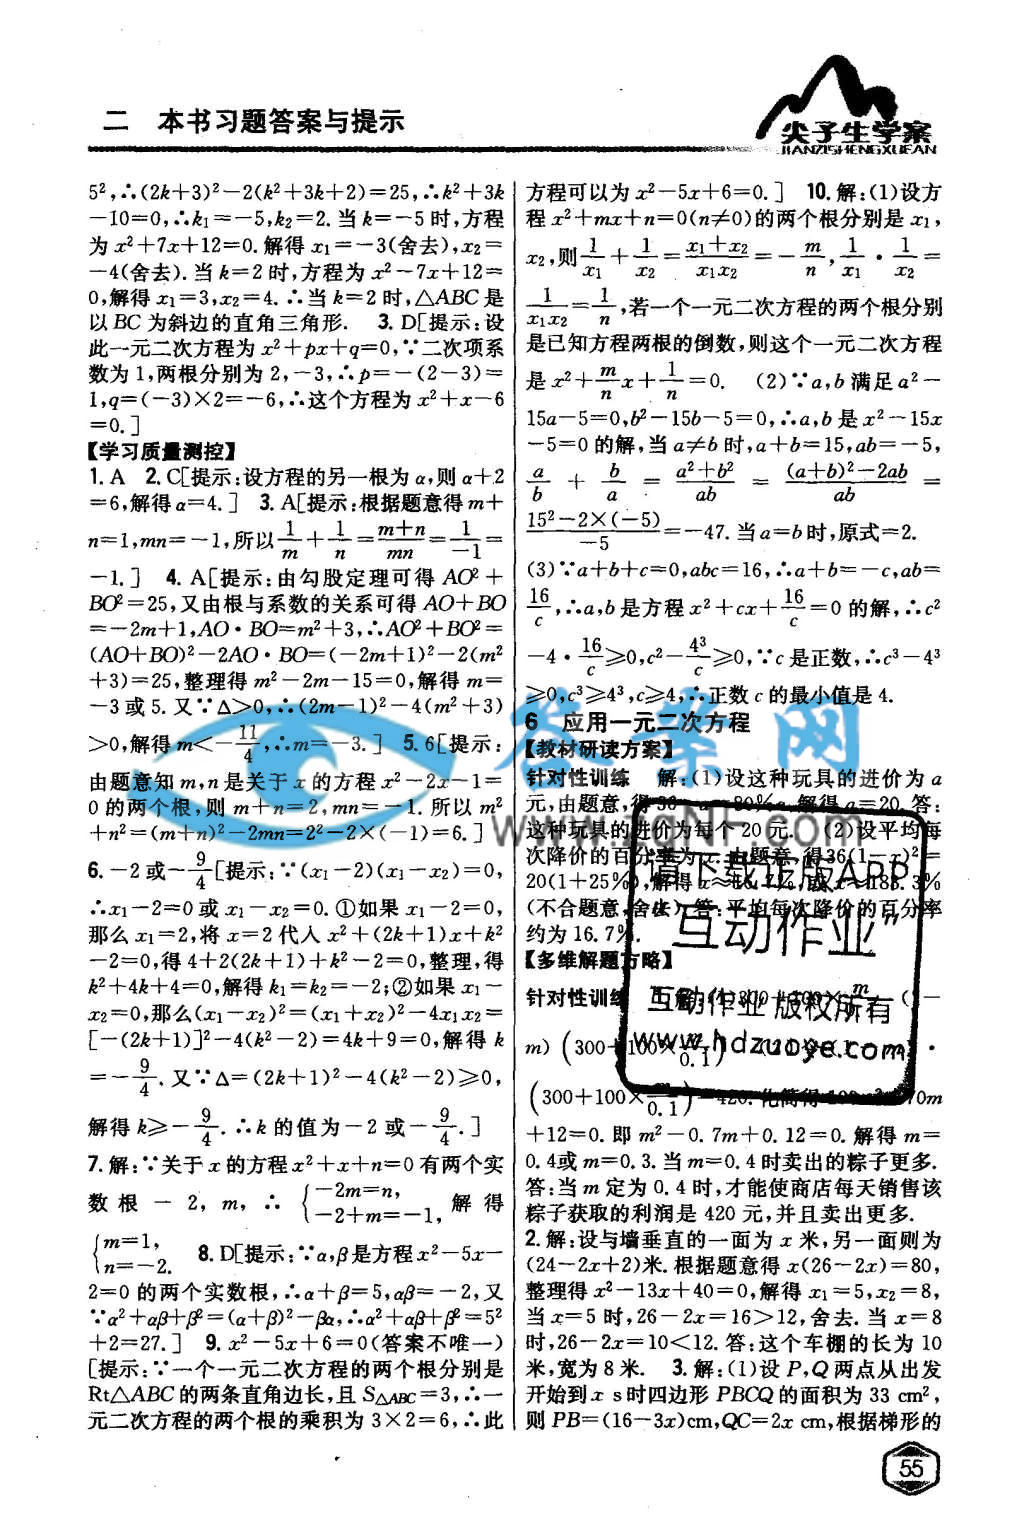 二 本书习题答案与提示
尖子生学案
JIANZISHENGXUEAN
5²,∴(2k+3)²-2(k²+3k+2)=25,∴k²+3k
-10=0,∴k₁=-5,k₂=2.当k=-5时,方程
为x²+7x+12=0.解得x₁=-3(舍去),x₂=
-4(舍去).当k=2时,方程为x²-7x+12=
0,解得x₁=3,x₂=4.∴当k=2时,△ABC是
以BC为斜边的直角三角形. 3.D[提示:设
此一元二次方程为x²+px+q=0,∵二次项系
数为1,两根分别为2,-3,∴p=-(2-3)=
1,q=(-3)×2=-6,∴这个方程为x²+x-6
=0.]
【学习质量测控】
1.A 2.C[提示:设方程的另一根为α,则α+2
=6,解得α=4.] 3.A[提示:根据题意得m+
n=1,mn=-1,所以1/m+1/n=(m+n)/mn=1/(-1)=
-1.] 4.A[提示:由勾股定理可得AO²+
BO²=25,又由根与系数的关系可得AO+BO
=-2m+1,AO·BO=m²+3,∴AO²+BO²=
(AO+BO)²-2AO·BO=(-2m+1)²-2(m²
+3)=25,整理得m²-2m-15=0,解得m=
-3或5.又∵Δ>0,∴(2m-1)²-4(m²+3)
>0,解得m<-11/4,∴m=-3.] 5.6[提示:
由题意知m,n是关于x的方程x²-2x-1=
0的两个根,则m+n=2,mn=-1.所以m²
+n²=(m+n)²-2mn=2²-2×(-1)=6.]
6.-2或-9/4[提示:∵(x₁-2)(x₁-x₂)=0,
∴x₁-2=0或x₁-x₂=0.①如果x₁-2=0,
那么x₁=2,将x=2代入x²+(2k+1)x+k²
-2=0,得4+2(2k+1)+k²-2=0,整理,得
k²+4k+4=0,解得k₁=k₂=-2;②如果x₁-
x₂=0,那么(x₁-x₂)²=(x₁+x₂)²-4x₁x₂=
[-(2k+1)]²-4(k²-2)=4k+9=0,解得k
=-9/4.又∵Δ=(2k+1)²-4(k²-2)≥0,
解得k≥-9/4.∴k的值为-2或-9/4.]
7.解:∵关于x的方程x²+x+n=0有两个实
数根-2,m,∴{-2m=n, -2+m=-1, 解得
{m=1, n=-2. 8.D[提示:∵α,β是方程x²-5x-
2=0的两个实数根,∴α+β=5,αβ=-2,又
∵α²+αβ+β²=(α+β)²-βα,∴α²+αβ+β²=5²
+2=27.] 9.x²-5x+6=0(答案不唯一)
[提示:∵一个一元二次方程的两个根分别是
Rt△ABC的两条直角边长,且S△ABC=3,∴一
元二次方程的两个根的乘积为3×2=6,∴此
方程可以为x²-5x+6=0.] 10.解:(1)设方
程x²+mx+n=0(n≠0)的两个根分别是x₁,
x₂,则1/x₁+1/x₂=(x₁+x₂)/x₁x₂=-m/n,1/x₁·1/x₂=
1/x₁x₂=1/n,若一个一元二次方程的两个根分别
是已知方程两根的倒数,则这个一元二次方程
是x²+m/n x+1/n=0. (2)∵a,b满足a²-
15a-5=0,b²-15b-5=0,∴a,b是x²-15x
-5=0的解,当a≠b时,a+b=15,ab=-5,
a/b+b/a=(a²+b²)/ab=((a+b)²-2ab)/ab=
(15²-2×(-5))/-5=-47.当a=b时,原式=2.
(3)∵a+b+c=0,abc=16,∴a+b=-c,ab=
16/c,∴a,b是方程x²+cx+16/c=0的解,∴c²
-4·16/c≥0,c²-4³/c≥0,∵c是正数,∴c³-4³
≥0,c³≥4³,c≥4,∴正数c的最小值是4.
6 应用一元二次方程
【教材研读方案】
针对性训练 解:(1)设这种玩具的进价为a
元,由题意,得36-a=80%a,解得a=20.答:
这种玩具的进价为每个20元. (2)设平均每
次降价的百分率为x.由题意,得36(1-x)²=
20(1+25%),解得x≈16.7%,或x≈183.3%
(不合题意,舍去).答:平均每次降价的百分率
约为16.7%.
【多维解题方略】
针对性训练 300+100×m (1-
m)(300+100×m/0.1)
(300+100×m/0.1)=420.化简得100m²-70m
+12=0.即m²-0.7m+0.12=0.解得m=
0.4或m=0.3.当m=0.4时卖出的粽子更多.
答:当m定为0.4时,才能使商店每天销售该
粽子获取的利润是420元,并且卖出更多.
2.解:设与墙垂直的一面为x米,另一面则为
(24-2x+2)米.根据题意得x(26-2x)=80,
整理得x²-13x+40=0,解得x₁=5,x₂=8,
当x=5时,26-2x=16>12,舍去.当x=8
时,26-2x=10<12.答:这个车棚的长为10
米,宽为8米. 3.解:(1)设P,Q两点从出发
开始到x s时四边形PBCQ的面积为33 cm²,
则PB=(16-3x)cm,QC=2x cm,根据梯形的
55
答案网
www.1010NF.com
请下载正版APP
互动作业”
互动作业 版权所有
www.hdzuoye.com